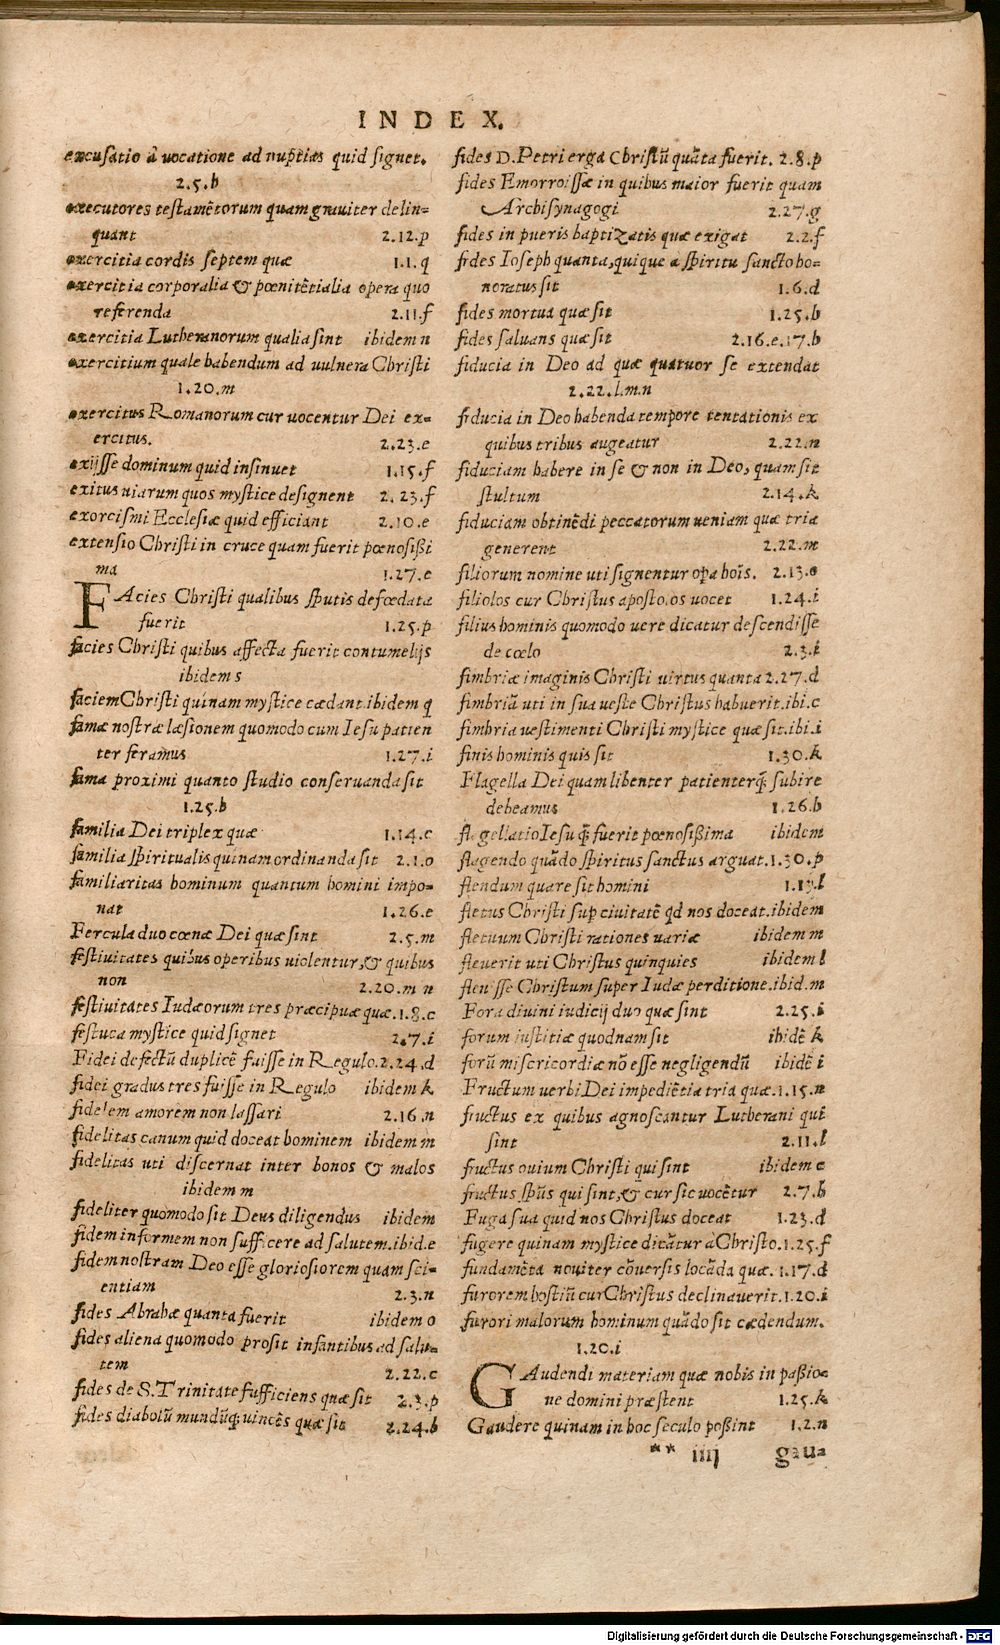 INDEX.
excusatio à vocatione ad nuptias quid signet.
2.5.h
executores testamẽtorum quam grauiter delin=
quant 2.12.p
exercitia cordis septem quæ 1.1.q
exercitia corporalia & pœnitẽtialia opera quo
referenda 2.11.f
exercitia Lutheranorum qualia sint ibidem n
exercitium quale habendum ad uulnera Christi
1.20.m
exercitus Romanorum cur uocentur Dei ex=
ercitus. 2.23.e
exijsse dominum quid insinuet 1.15.f
exitus uiarum quos mystice designent 2.23.f
exorcismi Ecclesiæ quid efficiant 2.10.e
extensio Christi in cruce quam fuerit pœnosißi
ma 1.27.c
FAcies Christi qualibus sputis defœdata
fuerit 1.25.p
facies Christi quibus affecta fuerit contumelijs
ibidem s
faciem Christi quinam mystice cædant.ibidem q
famæ nostræ læsionem quomodo cum Iesu patien
ter feramus 1.27.i
fama proximi quanto studio conseruanda sit
1.25.h
familia Dei triplex quæ 1.14.c
familia spiritualis quinam ordinanda sit 2.1.o
familiaritas hominum quantum homini impo=
nat 1.26.e
Fercula duo cœnæ Dei quæ sint 2.5.m
festiuitates quibus operibus uiolentur, & quibus
non 2.20.m n
festiuitates Iudæorum tres præcipuæ quæ.1.8.c
festuca mystice quid signet 2.7.i
Fidei defectũ duplicẽ fuisse in Regulo.2.24.d
fidei gradus tres fuisse in Regulo ibidem k
fidelem amorem non lassari 2.16.n
fidelitas canum quid doceat hominem ibidem m
fidelitas uti discernat inter bonos & malos
ibidem m
fideliter quomodo sit Deus diligendus ibidem
fidem informem non sufficere ad salutem.ibid.e
fidem nostram Deo esse gloriosiorem quam sci=
entiam 2.3.n
fides Abrahæ quanta fuerit ibidem o
fides aliena quomodo prosit infantibus ad salu=
tem 2.22.c
fides de S. Trinitate sufficiens quæ sit 2.3.p
fides diabolũ mundũq; uincẽs quæ sit 2.24.b
fides D. Petri erga Christũ quãta fuerit. 2.8.p
fides Emorroissæ in quibus maior fuerit quam
Archisynagogi 2.27.g
fides in pueris baptizatis quæ exigat 2.2.f
fides Ioseph quanta, quique a spiritu sancto ho=
noratus sit 1.6.d
fides mortua quæ sit 1.25.h
fides saluans quæ sit 2.16.e.17.b
fiducia in Deo ad quæ quatuor se extendat
2.22.l.m.n
fiducia in Deo habenda tempore tentationis ex
quibus tribus augeatur 2.22.n
fiduciam habere in se & non in Deo, quam sit
stultum 2.14.k
fiduciam obtinẽdi peccatorum ueniam quæ tria
generent 2.22.m
filiorum nomine uti signentur opa hoĩs. 2.13.o
filiolos cur Christus apostolos uocet 1.24.i
filius hominis quomodo uere dicatur descendisse
de cœlo 2.3.i
fimbriæ imaginis Christi uirtus quanta 2.27.d
fimbriã uti in sua ueste Christus habuerit.ibi.c
fimbria uestimenti Christi mystice quæ sit.ibi.i
finis hominis quis sit 1.30.k
Flagella Dei quam libenter patienterq; subire
debeamus 1.26.h
flagellatio Iesu q̃ fuerit pœnosißima ibidem
flagendo quãdo spiritus sanctus arguat.1.30.p
flendum quare sit homini l
fletus Christi sup ciuitatẽ qd nos doceat.ibidem
fletuum Christi rationes uariæ ibidem m
fleuerit uti Christus quinquies ibidem l
fleuisse Christum super Iudæ perditione.ibid.m
Fora diuini iudicij duo quæ sint 2.25.i
forum iustitiæ quodnam sit ibidẽ k
forũ misericordiæ nõ esse negligendũ ibidẽ i
Fructum uerbi Dei impediẽtia tria quæ.1.15.n
fructus ex quibus agnoscantur Lutherani qui
sint 2.11.l
fructus ouium Christi qui sint ibidem c
fructus spũs qui sint, & cur sic uocẽtur 2.7.h
Fuga sua quid nos Christus doceat 1.23.d
fugere quinam mystice dicãtur à Christo.1.25.f
fundamẽta nouiter cõuersis locãda quæ.1.17.d
furorem hostiũ cur Christus declinauerit.1.20.i
furori malorum hominum quãdo sit cædendum.
1.20.i
GAudendi materiam quæ nobis in paßio=
ne domini præstent 1.25.k
Gaudere quinam in hoc seculo poßint 1.2.n
** iiij gaua
Digitalisierung gefördert durch die Deutsche Forschungsgemeinschaft - DFG